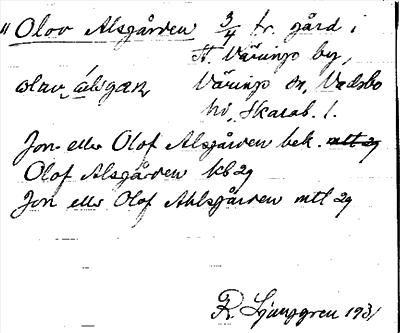 " Olov Alsgården 3/4 kr. gård i
St. Väringe by,
Väringe sn, Vadsbo
hd, Skarab. l.
Jon eller Olof Alsgården bek. mtl 29
Olof Alsgården kb 29
Jon eller Olof Ahlsgården mtl 29
R. Ljunggren 1931